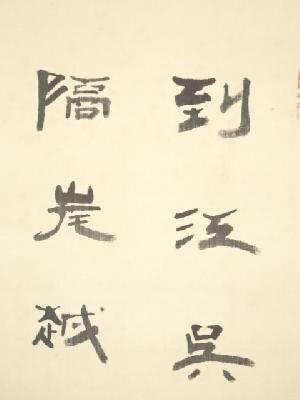 到江吳
隔岸越